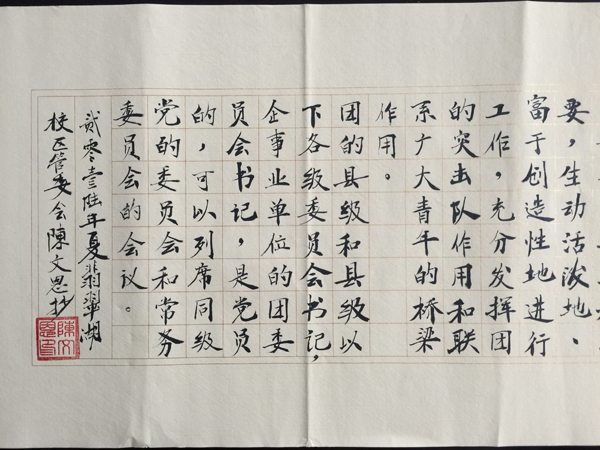 要，生动活泼地、
富于创造性地进行
工作，充分发挥团
的突击队作用和联
系广大青年的桥梁
作用。
团的县级和县级以
下各级委员会书记，
企事业单位的团委
员会书记，是党员
的，可以列席同级
党的委员会和常务
委员会的会议。
贰零壹陆年夏翡翠湖
校区管委会陳文思抄
陳文思印